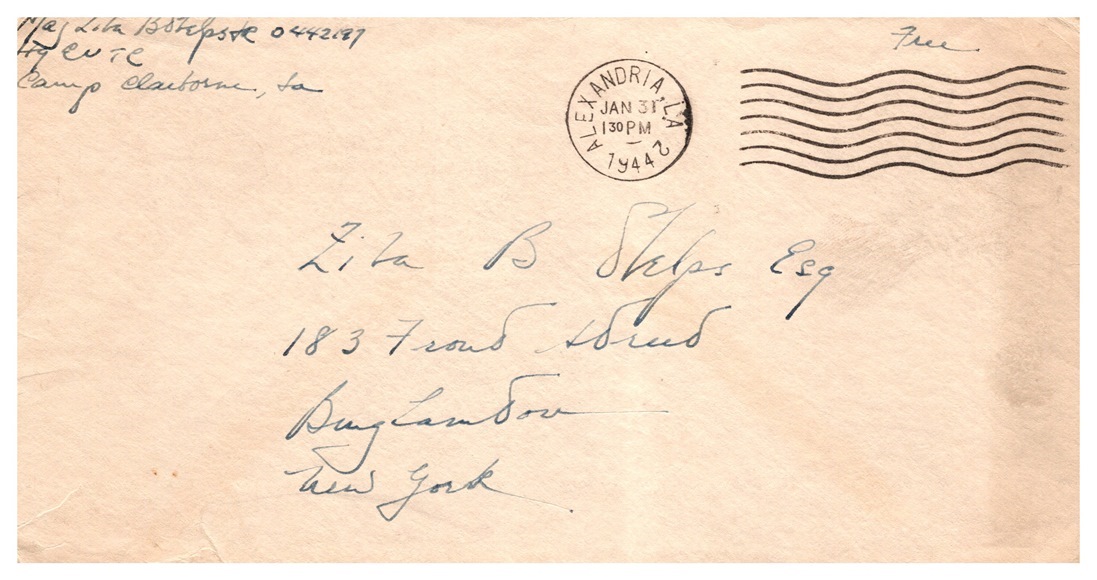 Maj Zita B Stelps Jr 0442197
Hq EUTC
Camp Claiborne, La
Free
ALEXANDRIA, LA
JAN 31
1 30 PM
1944
2
Zita B Stelps Esq
183 Front Street
Binghamton
New York